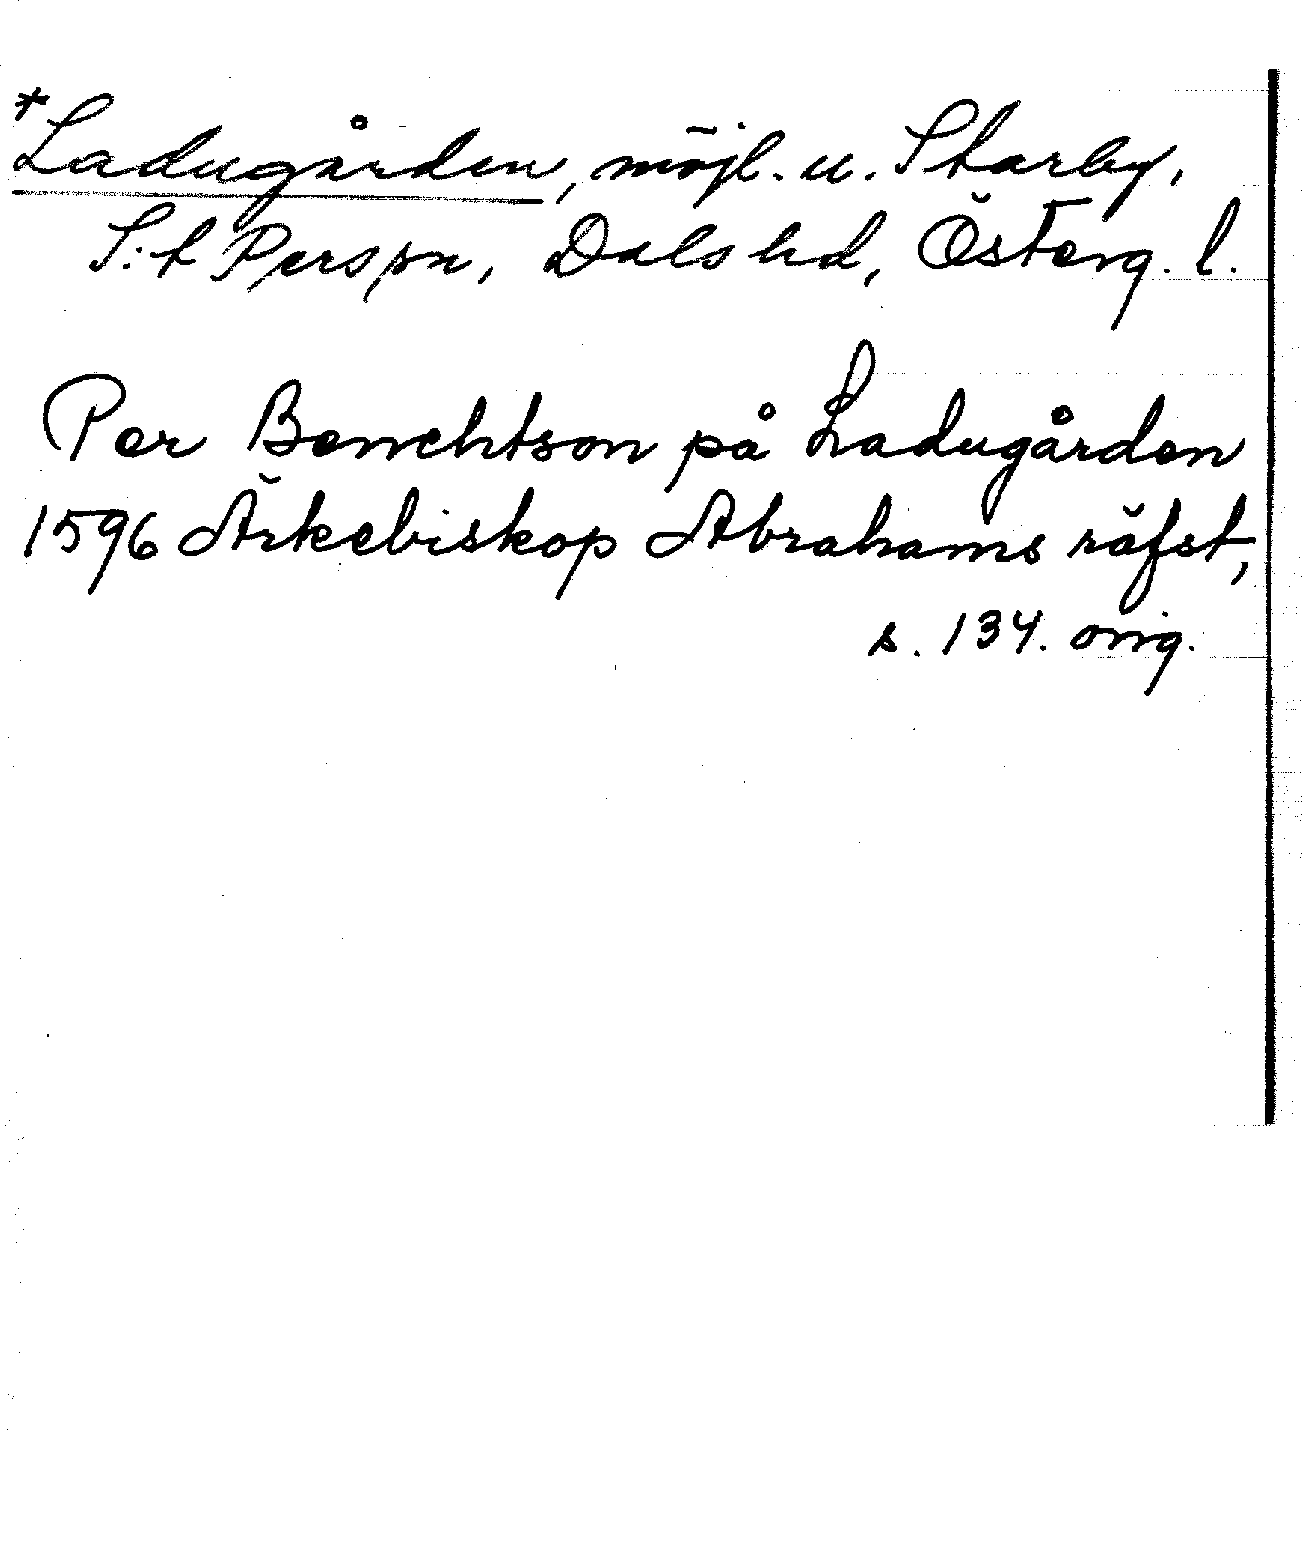 *Ladugården, möjl. u. Starby,
S:t Pers sn, Dals hd, Österg. l.
Per Benchtson på Ladugården
1596 Ärkebiskop Abrahams räfst,
s. 134. orig.